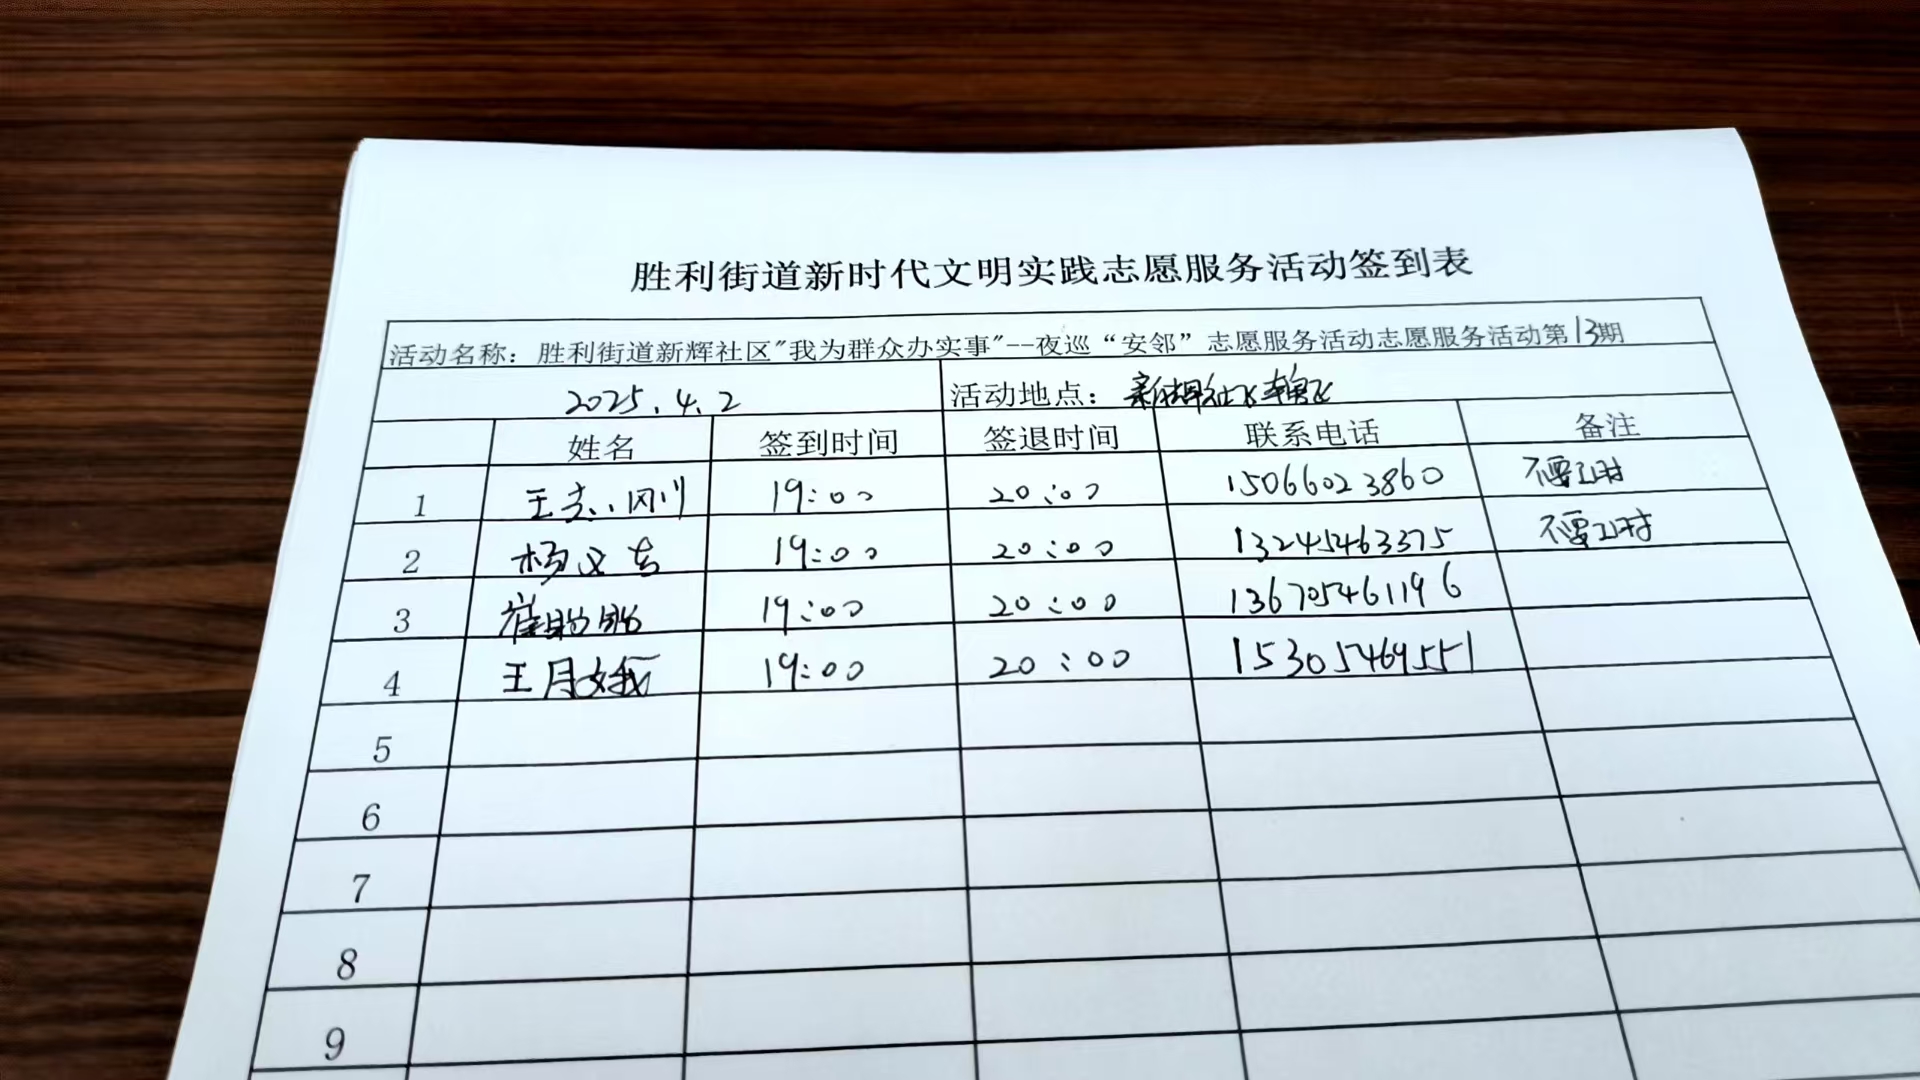 胜利街道新时代文明实践志愿服务活动签到表
活动名称：胜利街道新辉社区"我为群众办实事"--夜巡“安邻”志愿服务活动志愿服务活动第13期
2025.4.2 活动地点：新辉社区辖区
姓名 签到时间 签退时间 联系电话 备注
1 王志刚 19:00 20:00 15066023860 不要工时
2 杨义吉 19:00 20:00 13245463375 不要工时
3 崔 19:00 20:00 136705461196
4 王月娥 19:00 20:00 15305469551
5
6
7
8
9